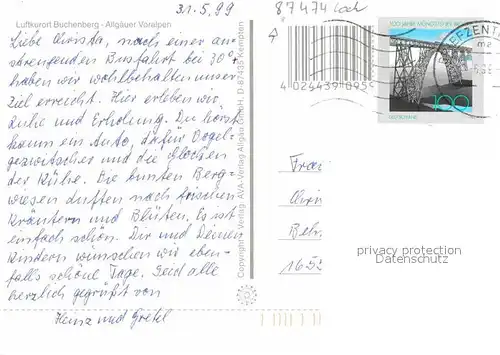 31.5.99
87474 Lad
Luftkurort Buchenberg - Allgäuer Voralpen
Liebe Christa, nach einer an-
strengenden Busfahrt bei 30°
haben wir wohlbehalten unser
Ziel erreicht. Hier erleben wir
Ruhe und Erholung. Du hörst
kaum ein Auto, dafür Vogel-
gezwitscher und die Glocken
der Kühe. Die bunten Berg-
wiesen duften nach frischen
Kräutern und Blüten. Es ist
einfach schön. Dir und Deinen
Kindern wünschen wir eben-
falls schöne Tage. Seid alle
herzlich gegrüßt von
Heinz und Gretel
Copyright by Verlag AVA-Verlag Allgäu GmbH, D-87435 Kempten
4 024439 095
100 JAHRE MÜNGSTENER
100
DEUTSCHLAND
EFZENT
Frau
Chri
Beh
1652
privacy protection
Datenschutz